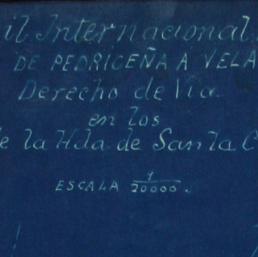 il Internacional
DE PEDRICEÑA Á VELA
Derecho de Via
en los
e la Hda de Santa C
ESCALA 1/20000.